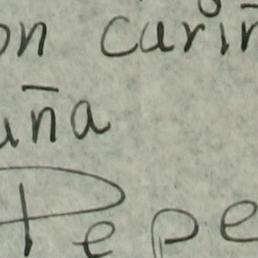 on cariñ
uña
Pepe